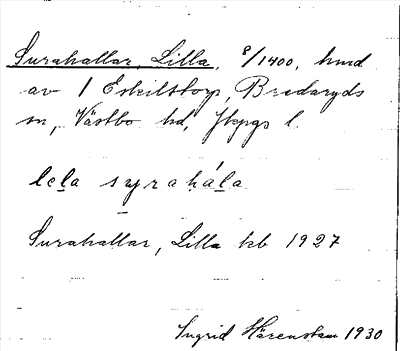 Surahallar, Lilla, 8/1400, hmd
av 1 Eskilstorp, Bredaryds
sn, Västbo hd, Jkpgs l.
lela syrahála
Surahallar, Lilla kb 1927
Ingrid Härenstam 1930